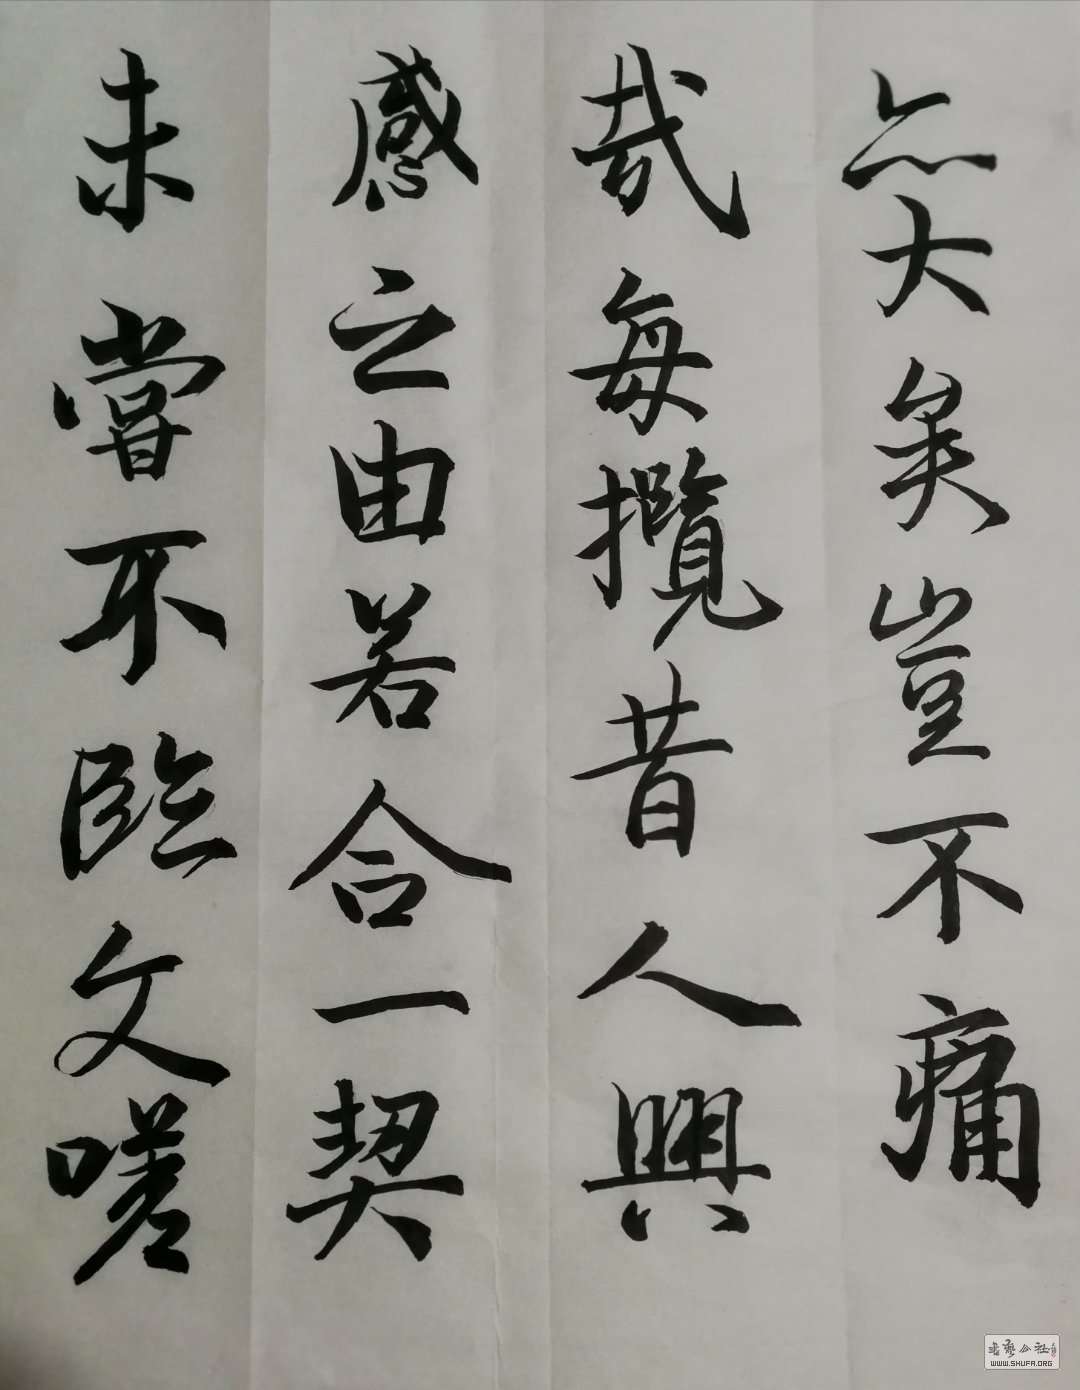 亦大矣豈不痛
哉每攬昔人興
感之由若合一契
未嘗不臨文嗟
WWW.SHUFA.ORG